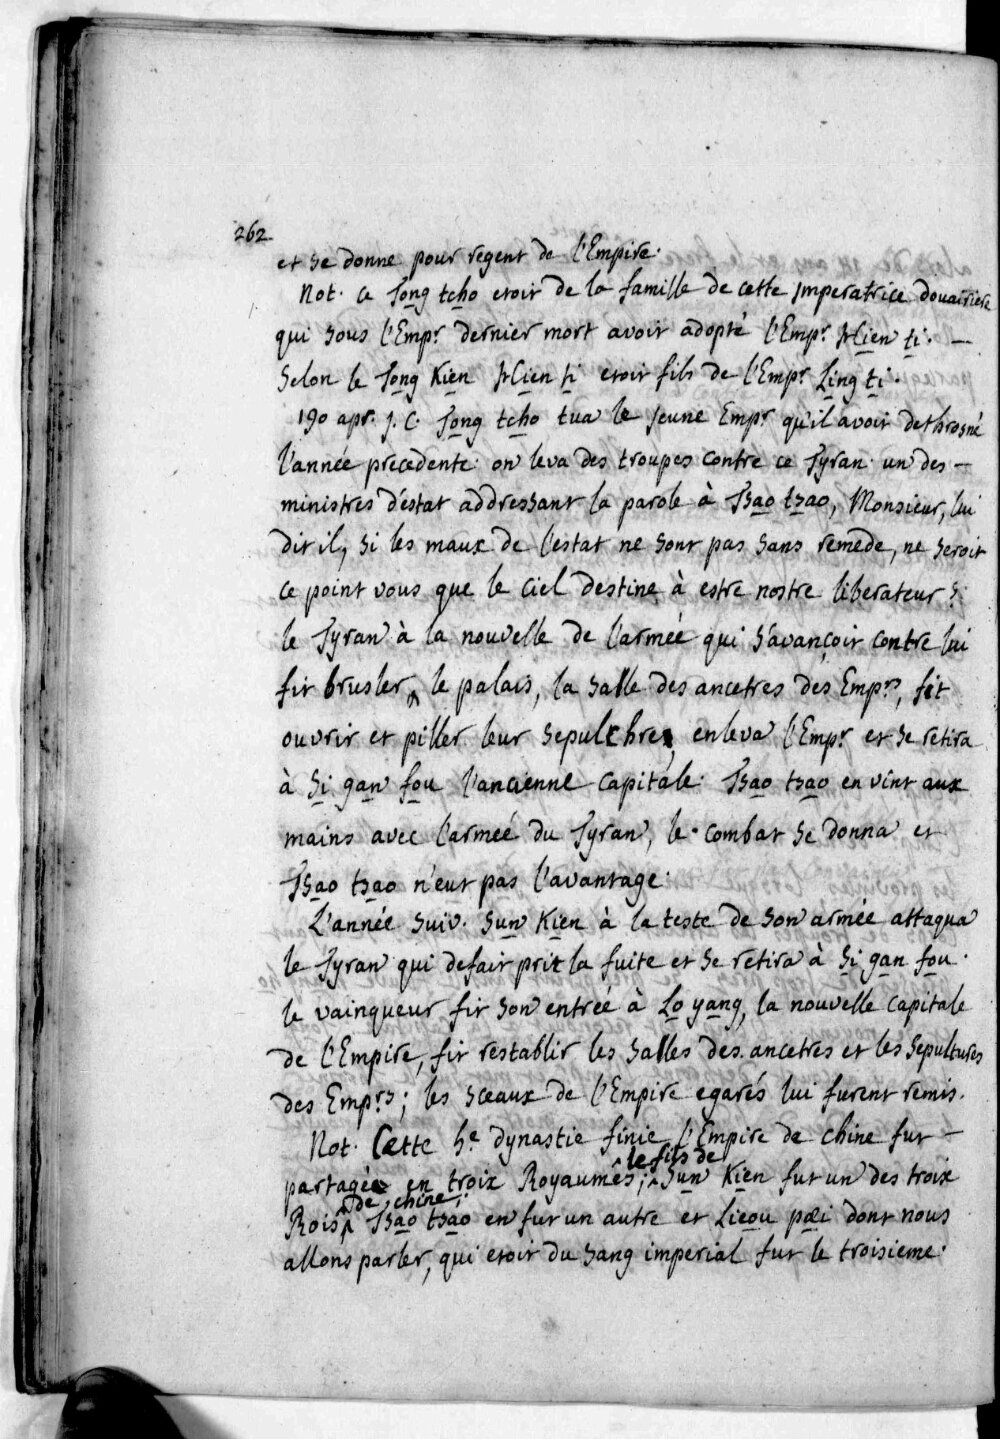 262
et se donne pour regent de l'Empire.
Not. ce Tong tcho etoit de la famille de cette Imperatrice douairiere
qui sous l'Empr. dernier mort avoit adopté l'Empr. Hien ti. —
Selon le Tong Kien Hien ti etoit fils de l'Empr. Ling ti.
190 apr. J. C. Tong tcho tua le jeune Empr. qu'il avoit dethrosné
l'année precedente. on leva des troupes contre ce Tyran. un des —
ministres d'estat addressant la parole à Tsao tsao, Monsieur, lui
dit il, si les maux de l'estat ne sont pas sans remede, ne seroit
ce point vous que le Ciel destine à estre nostre liberateur ?
le Tyran à la nouvelle de l'armée qui s'avançoit contre lui
fit brusler le palais, la salle des ancetres des Emprs, fit
ouvrir et piller leur sepulchres, enleva l'Empr. et se retira
à Si gan fou l'ancienne capitale. Tsao tsao en vint aux
mains avec l'armeé du Tyran, le combat se donna et
Tsao tsao n'eut pas l'avantage.
L'année suiv. Sun Kien à la teste de son armée attaqua
le Tyran qui defait prit la fuite et se retira à Si gan fou.
le vainqueur fit son entrée à Lo yang, la nouvelle capitale
de l'Empire, fit restablir les salles des ancetres et les sepultures
des Emprs; les sceaux de l'Empire egarés lui furent remis.
Not. Cette 5e dynastie finie l'Empire de chine fut —
partagée en troix Royaumes; le fils de Sun Kien fut un des troix
Rois de chine; Tsao tsao en fut un autre et Lieou pæi dont nous
allons parler, qui etoit du sang imperial fut le troisieme.